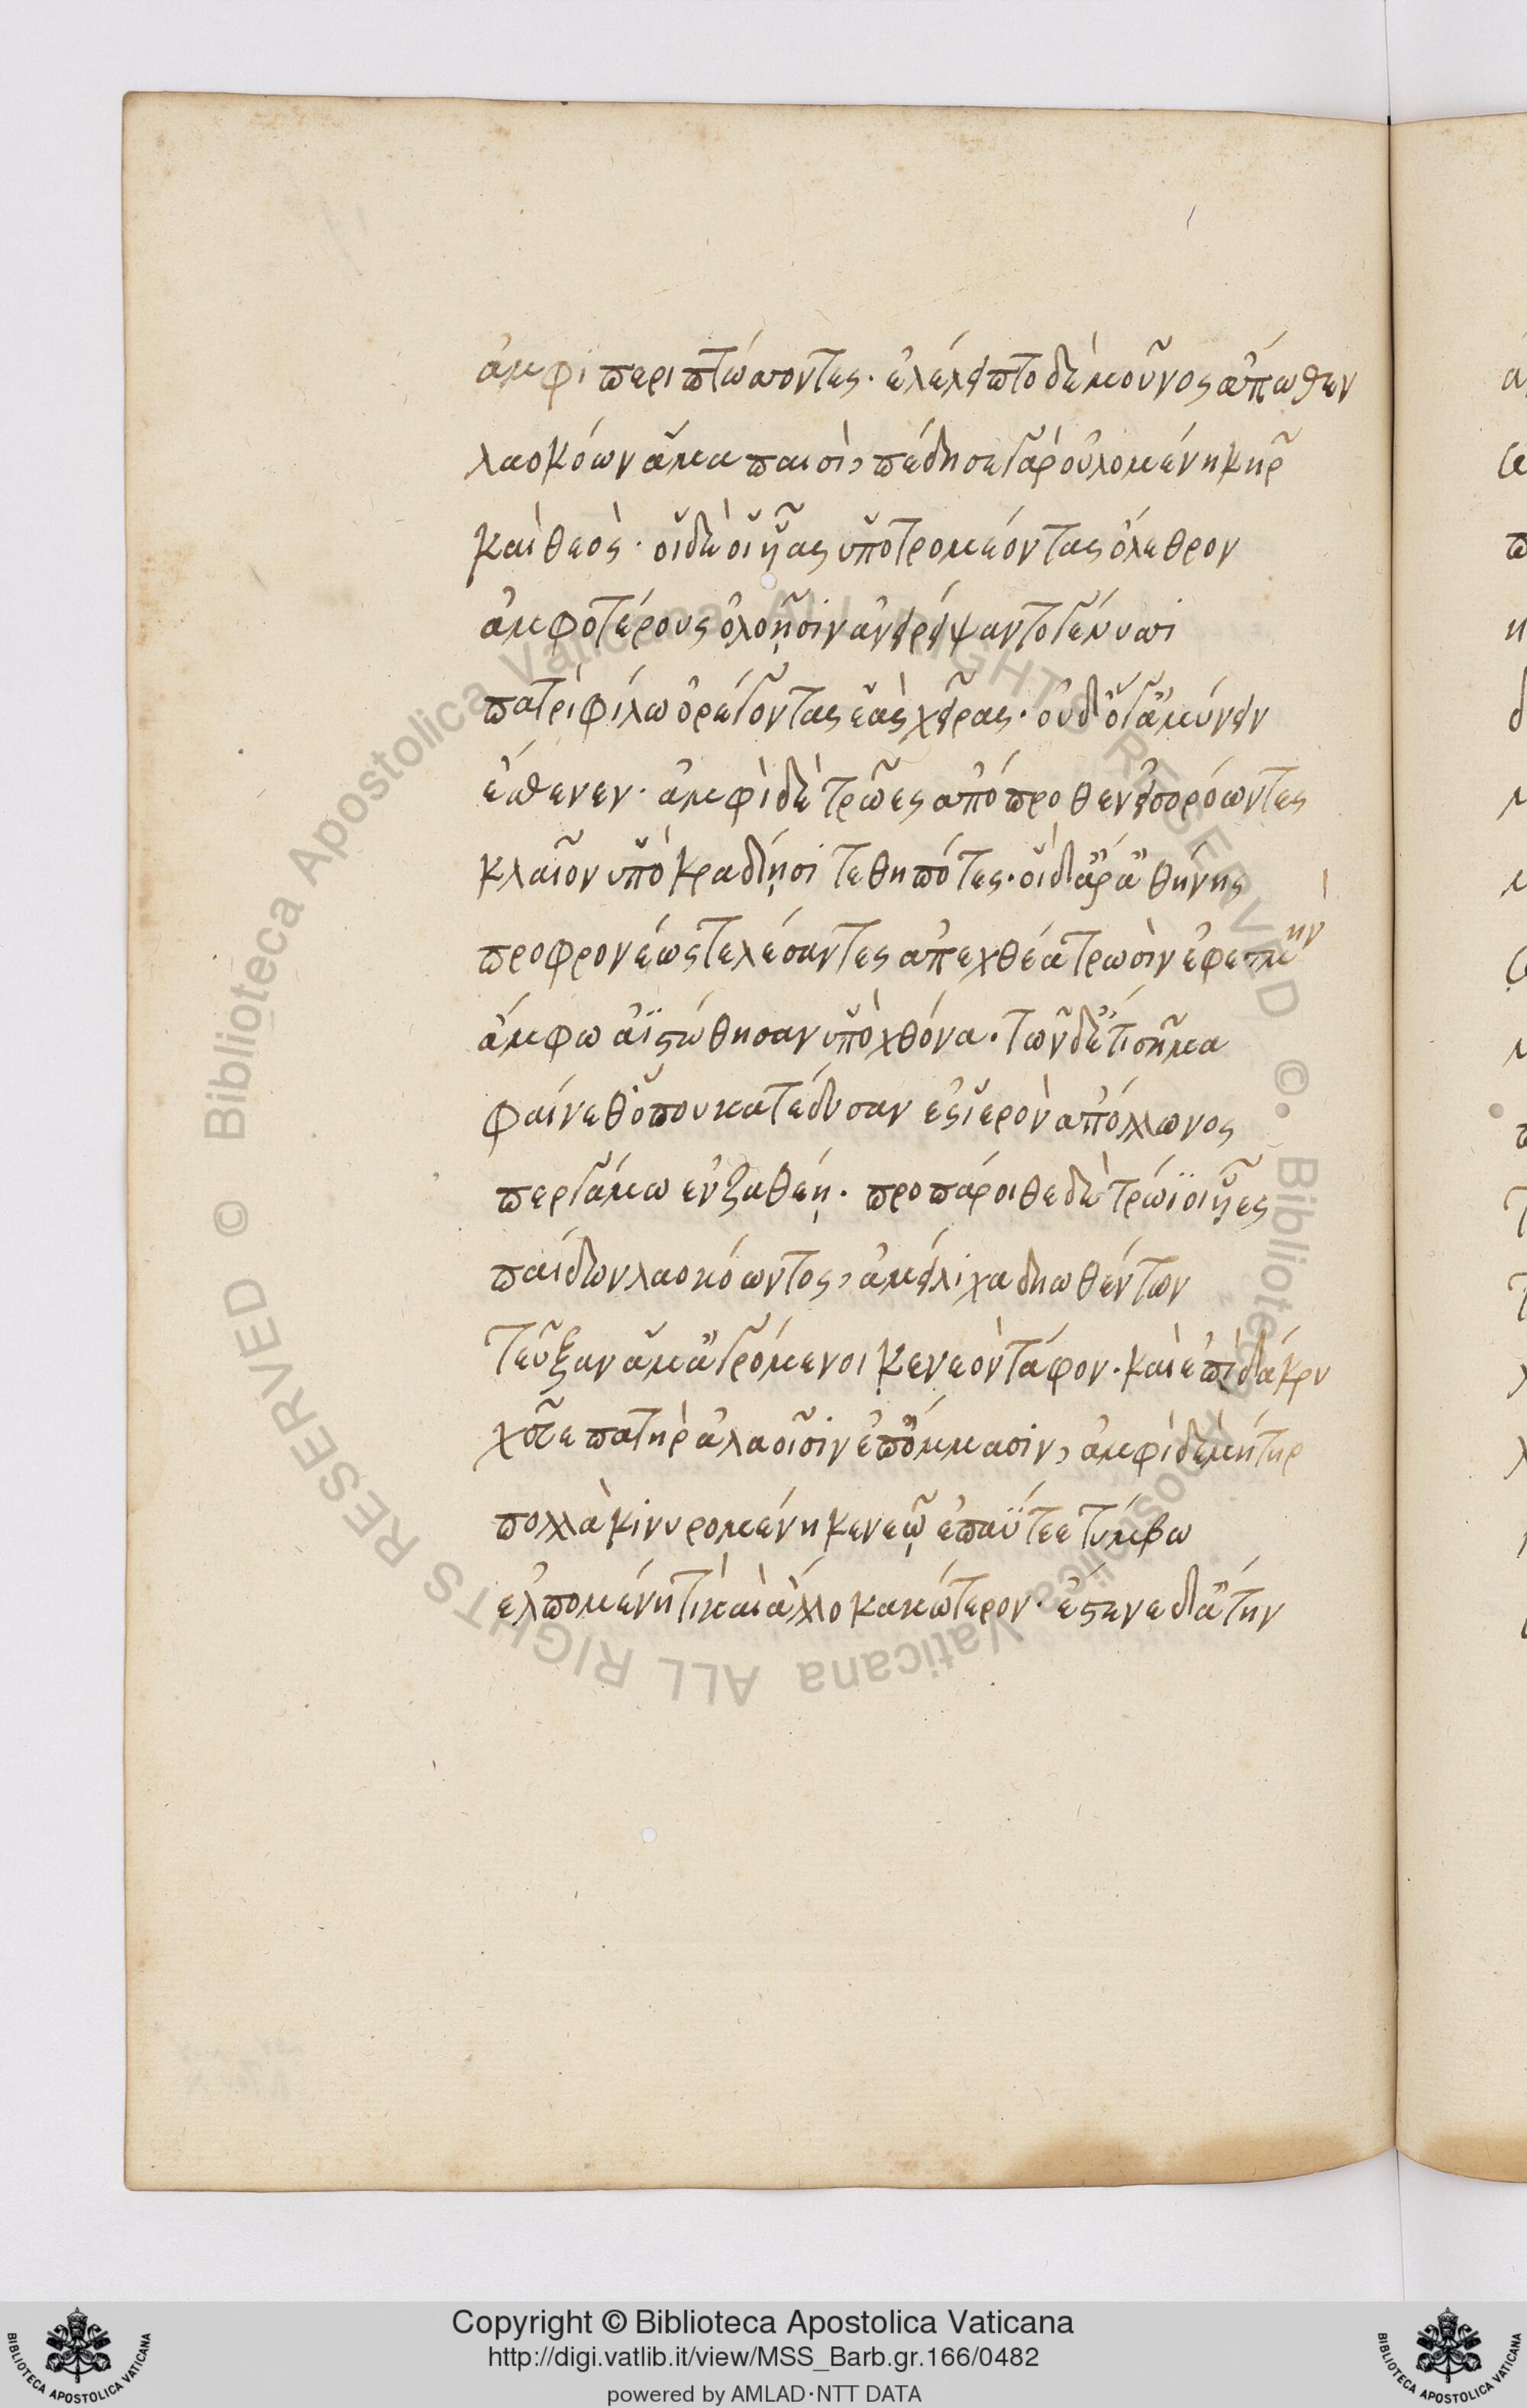 ἀμφὶ περιπτώσσοντες· ἐλέλειπτο δὲ μοῦνος ἄπωθεν
λαοκόων ἅμα παισὶ, πέδησε γὰρ οὐλομένη κῆρ
καὶ θεὸς· οἱ δὲ οἱ υἷας ὑποτρομέοντας ὄλεθρον
ἀμφοτέρους ὀλοῇσιν ἀνερείψαντο γένυσσι
πατρὶ φίλω ὀρέγοντας ἑὰς χεῖρας· οὐδ' ὅγ' ἀμύνειν
ἔσθενεν· ἀμφὶ δὲ τρῶες ἀπόπροθεν εἰσορόωντες
κλαῖον ὑπὸ κραδίῃσι τεθηπότες· οἱ δ' ἄρ' ἀθήνης
προφρονέως τελέσαντες ἀπεχθέα τρωσὶν ἐφετμὴν
ἄμφω ἀϊστώθησαν ὑπὸ χθόνα· τῶν δ' ἔτι σῆμα
φαίνεθ' ὅπου κατέδυσαν ἐς ἱερὸν ἀπόλλωνος
περγάμω ἐν ζαθέῃ· προπάροιθε δὲ τρώϊοι υἷες
παίδων λαοκόωντος, ἀμείλιχα δηωθέντων
τεῦξαν ἅμ' ἀγρόμενοι κενεὸν τάφον· καὶ ἐπὶ δάκρυ
χεῦε πατὴρ ἀλαοῖσιν ἐπ' ὄμμασιν, ἀμφὶ δὲ μήτηρ
πολλὰ κινυρομένη κενεῷ ἐπαΰτεε τύμβω
ἐλπομένη τι καὶ ἄλλο κακώτερον· ἔστενε δ' ἄτην
Copyright © Biblioteca Apostolica Vaticana
http://digi.vatlib.it/view/MSS_Barb.gr.166/0482
powered by AMLAD·NTT DATA